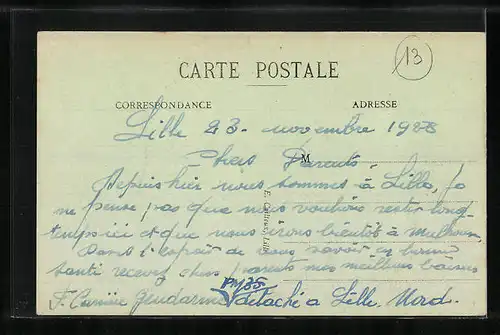 13
CARTE POSTALE
CORRESPONDANCE
ADRESSE
Lille 23. novembre 1928
M
Chers Parents.
Depuis hier nous sommes à Lille, Je
ne pense pas que nous voulions rester long
temps ici et que nous irons bientôt à Mulhouse
Dans l'espoir de vous savoir en bonne
santé recevez chers parents nos meilleurs baisers
PM35
Gendarme détaché a Lille. Nord.